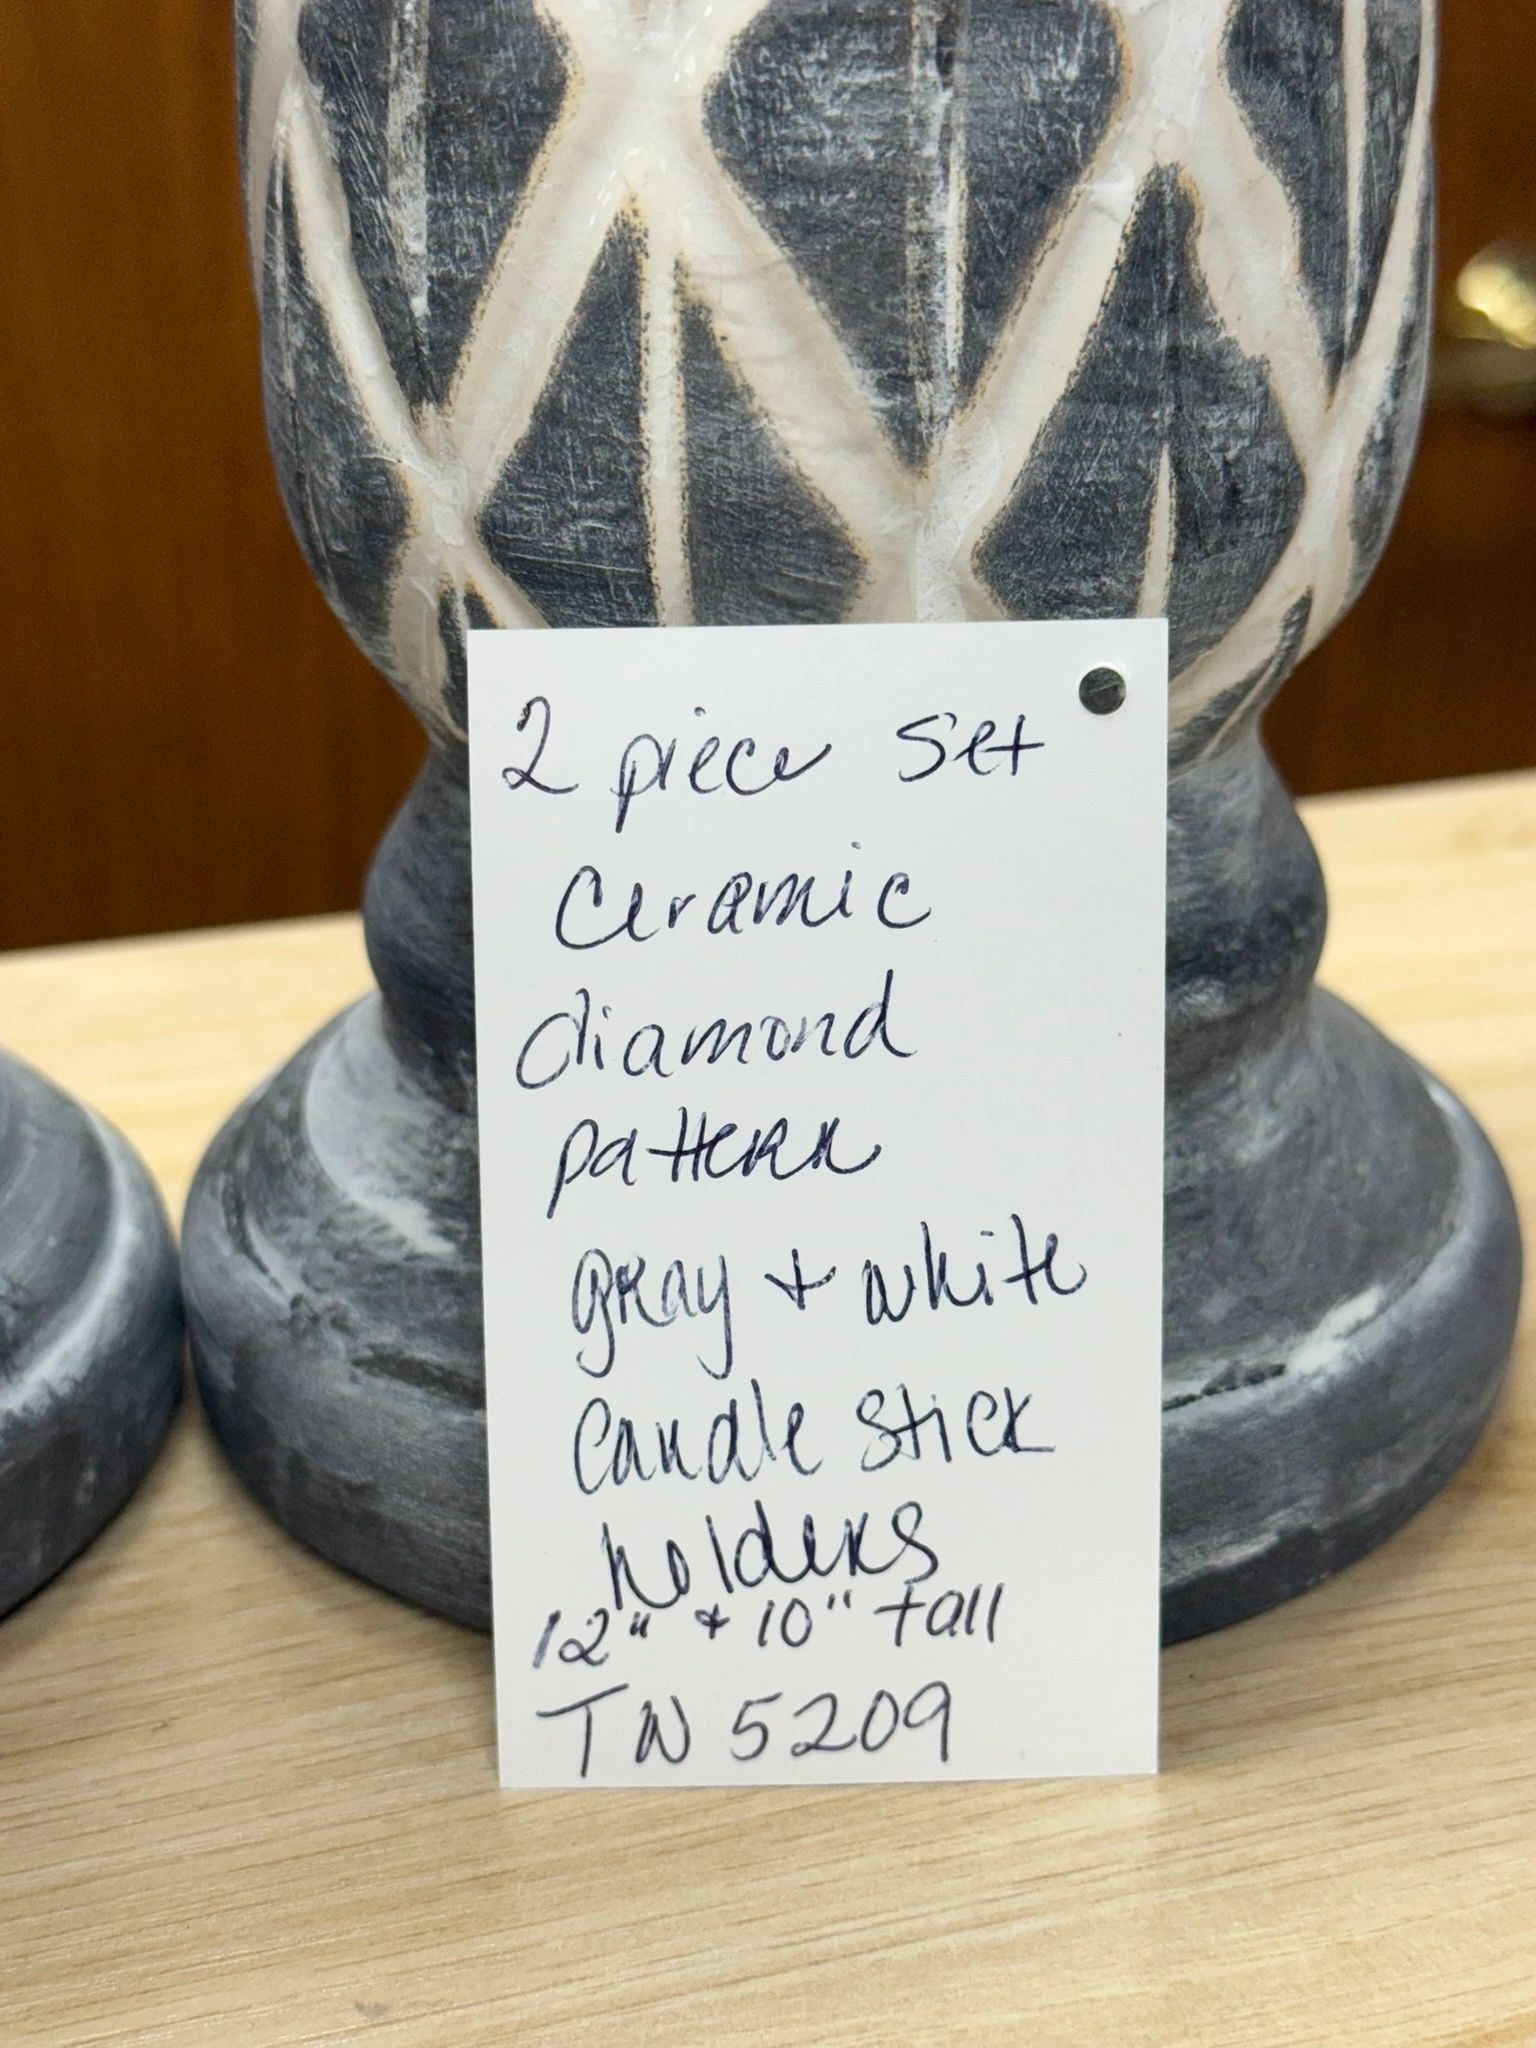 2 piece set
Ceramic
diamond
pattern
gray + white
Candle stick
holders
12" + 10" tall
TN 5209